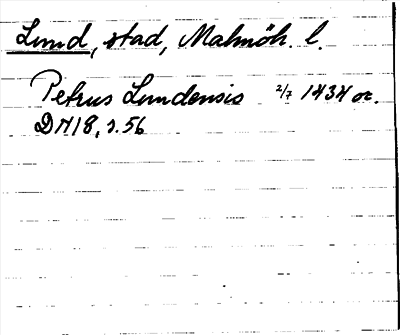 Lund, stad, Malmöh. l.
Petrus Lundensis 2/7 1434 or.
DN 18, s. 56